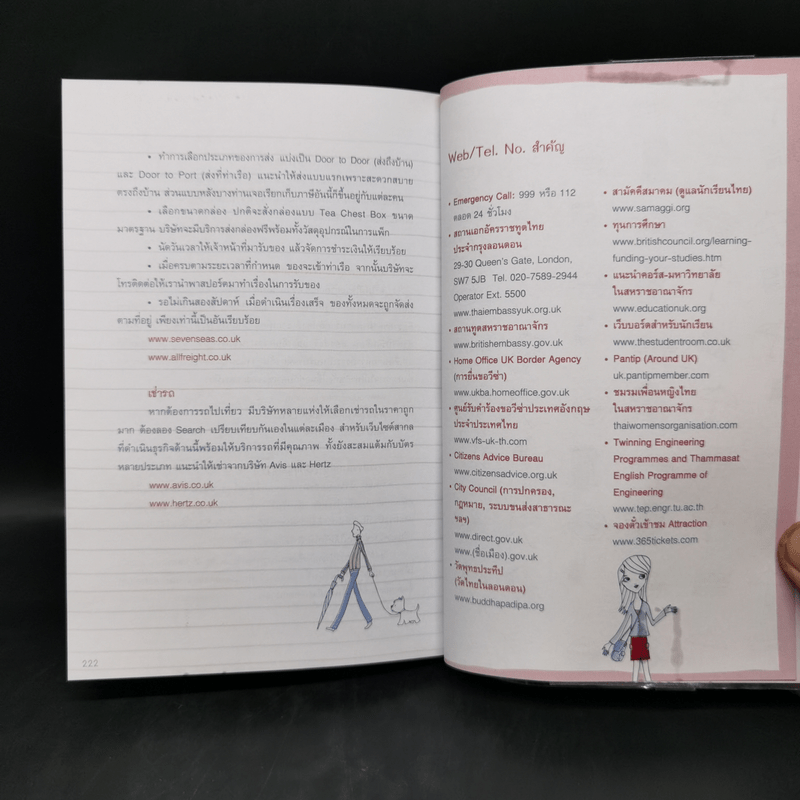 • ทำการเลือกประเภทของการส่ง แบ่งเป็น Door to Door (ส่งถึงบ้าน)
และ Door to Port (ส่งที่ท่าเรือ) แนะนำให้ส่งแบบแรกเพราะสะดวกสบาย
ตรงถึงบ้าน ส่วนแบบหลังบางท่านเจอเรียกเก็บภาษีอันนี้ก็ขึ้นอยู่กับแต่ละคน
• เลือกขนาดกล่อง ปกติจะสั่งกล่องแบบ Tea Chest Box ขนาด
มาตรฐาน บริษัทจะมีบริการส่งกล่องฟรีพร้อมทั้งวัสดุอุปกรณ์ในการแพ็ก
• นัดวันเวลาให้เจ้าหน้าที่มารับของ แล้วจัดการชำระเงินให้เรียบร้อย
• เมื่อครบตามระยะเวลาที่กำหนด ของจะเข้าท่าเรือ จากนั้นบริษัทจะ
โทรติดต่อให้เรานำพาสปอร์ตมาทำเรื่องในการรับของ
• รอไม่เกินสองสัปดาห์ เมื่อดำเนินเรื่องเสร็จ ของทั้งหมดจะถูกจัดส่ง
ตามที่อยู่ เพียงเท่านี้เป็นอันเรียบร้อย
www.sevenseas.co.uk
www.allfreight.co.uk
เช่ารถ
หากต้องการรถไปเที่ยว มีบริษัทหลายแห่งให้เลือกเช่ารถในราคาถูก
มาก ต้องลอง Search เปรียบเทียบกันเองในแต่ละเมือง สำหรับเว็บไซต์สากล
ที่ดำเนินธุรกิจด้านนี้พร้อมให้บริการรถที่มีคุณภาพ ทั้งยังสะสมแต้มกับบัตร
หลายประเภท แนะนำให้เช่าจากบริษัท Avis และ Hertz
www.avis.co.uk
www.hertz.co.uk
222
Web/Tel. No. สำคัญ
• Emergency Call: 999 หรือ 112
ตลอด 24 ชั่วโมง
• สถานเอกอัครราชทูตไทย
ประจำกรุงลอนดอน
29-30 Queen's Gate, London,
SW7 5JB Tel. 020-7589-2944
Operator Ext. 5500
www.thaiembassyuk.org.uk
• สถานทูตสหราชอาณาจักร
www.britishembassy.gov.uk
• Home Office UK Border Agency
(การยื่นขอวีซ่า)
www.ukba.homeoffice.gov.uk
• ศูนย์รับคำร้องขอวีซ่าประเทศอังกฤษ
ประจำประเทศไทย
www.vfs-uk-th.com
• Citizens Advice Bureau
www.citizensadvice.org.uk
• City Council (การปกครอง,
กฎหมาย, ระบบขนส่งสาธารณะ
ฯลฯ)
www.direct.gov.uk
www.(ชื่อเมือง).gov.uk
• วัดพุทธประทีป
(วัดไทยในลอนดอน)
www.buddhapadipa.org
• สามัคคีสมาคม (ดูแลนักเรียนไทย)
www.samaggi.org
• ทุนการศึกษา
www.britishcouncil.org/learning-
funding-your-studies.htm
• แนะนำคอร์ส-มหาวิทยาลัย
ในสหราชอาณาจักร
www.educationuk.org
• เว็บบอร์ดสำหรับนักเรียน
www.thestudentroom.co.uk
• Pantip (Around UK)
uk.pantipmember.com
• ชมรมเพื่อนหญิงไทย
ในสหราชอาณาจักร
thaiwomensorganisation.com
• Twinning Engineering
Programmes and Thammasat
English Programme of
Engineering
www.tep.engr.tu.ac.th
• จองตั๋วเข้าชม Attraction
www.365tickets.com